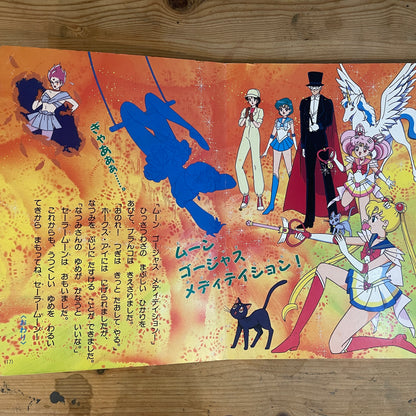 きゃあああぁ……
ムーン
ゴージャス
メディテイション！
「ムーン　ゴージャス　メディテイション！」
ひっさつわざの　まぶしい　ひかりを
あびて、ブランコは　きえさりました。
「おのれ！　つぎは　きっと　たおして　やる。」
ホークス・アイには　にげられましたが、
なつみを、ぶじに　たすける　ことが　できました。
「なつみさんの　ゆめが　かなうと　いいな。」
セーラームーンは　おもいました。
これからも、うつくしい　ゆめを　わるい
てきから　まもってね、セーラームーン！
〈おわり〉